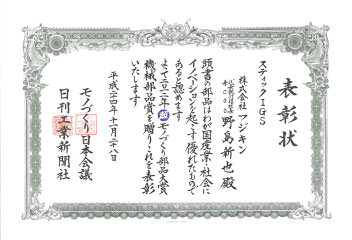 表彰状
スティックIGS
株式会社フジキン
野島新也殿
頭書の部品はわが国産業・社会に
イノベーションを起こす優れたもので
あると認めます
よって二〇一二年超モノづくり部品大賞
機械部品賞を贈りこれを表彰
いたします
平成二十四年十一月二十八日
モノづくり日本会議
日刊工業新聞社